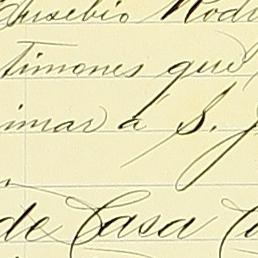 Eusebio Rodr
timones que
imar á S. J
de Casa C